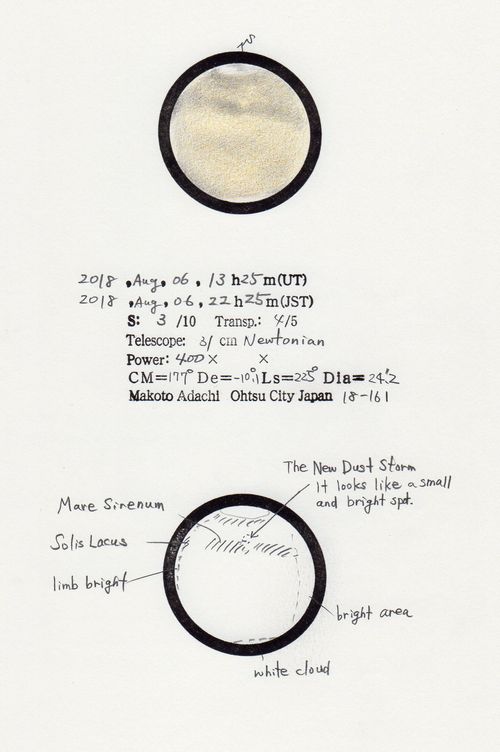 2018 , Aug, 06 , 13 h25m(UT)
2018 , Aug, 06 , 22 h25m(JST)
S: 3 /10 Transp.: 4/5
Telescope: 31 cm Newtonian
Power: 400× ×
CM=177° De=-10°.1 Ls=225° Dia=24".2
Makoto Adachi Ohtsu City Japan 18-161
The New Dust Storm
It looks like a small
and bright spt.
Mare Sirenum
Solis Lacus
limb bright
bright area
white cloud